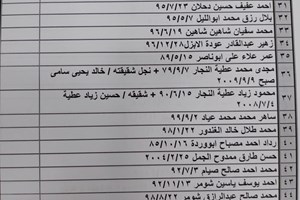 ٣١ أحمد عفيف حسين دحلان ٩٥/٧/٢٣
٣٢ بلال رزق محمد ابوالليل ٩٥/٥/٧
٣٣ محمد سفيان شاهين شاهين ٩٦/٦/١٩
٣٤ زهير عبدالقادر عودة الايزل ٩٦/١٢/٢٨
٣٥ عمر علاء علي ابوناصر ٨٩/٥/١٥
٣٦ مجدى محمد عطية النجار ٧٩/٩/٧ + نجل شقيقته / خالد يحيى سامى
صبح ٢٠٠٩/٩/٩
٣٧ محمود زياد عطية النجار ٩٠/٦/١٥ + شقيقه / حسين زياد عطية
٢٠٠٨/٧/٤
٣٨ ساهر محمد محمد عياد ٩٩/٩/٢
٣٩ محمد طلال خالد الغندور ٩٨/١/٢٢
٤٠ رداد احمد مصباح ابووردة ٨٥/١٠/١٦
٤١ حسن طارق ممدوح الجمل ٢٠٠٤/٢/٢٥
٤٢ محمد احمد صالح صيام ٩٢/٧/٣
٤٣ احمد يوسف ياسين شومر ٩٢/١١/١٣
٤٤ محمد صالح عبدالرازق شومر ٩٨/٨/٢٢